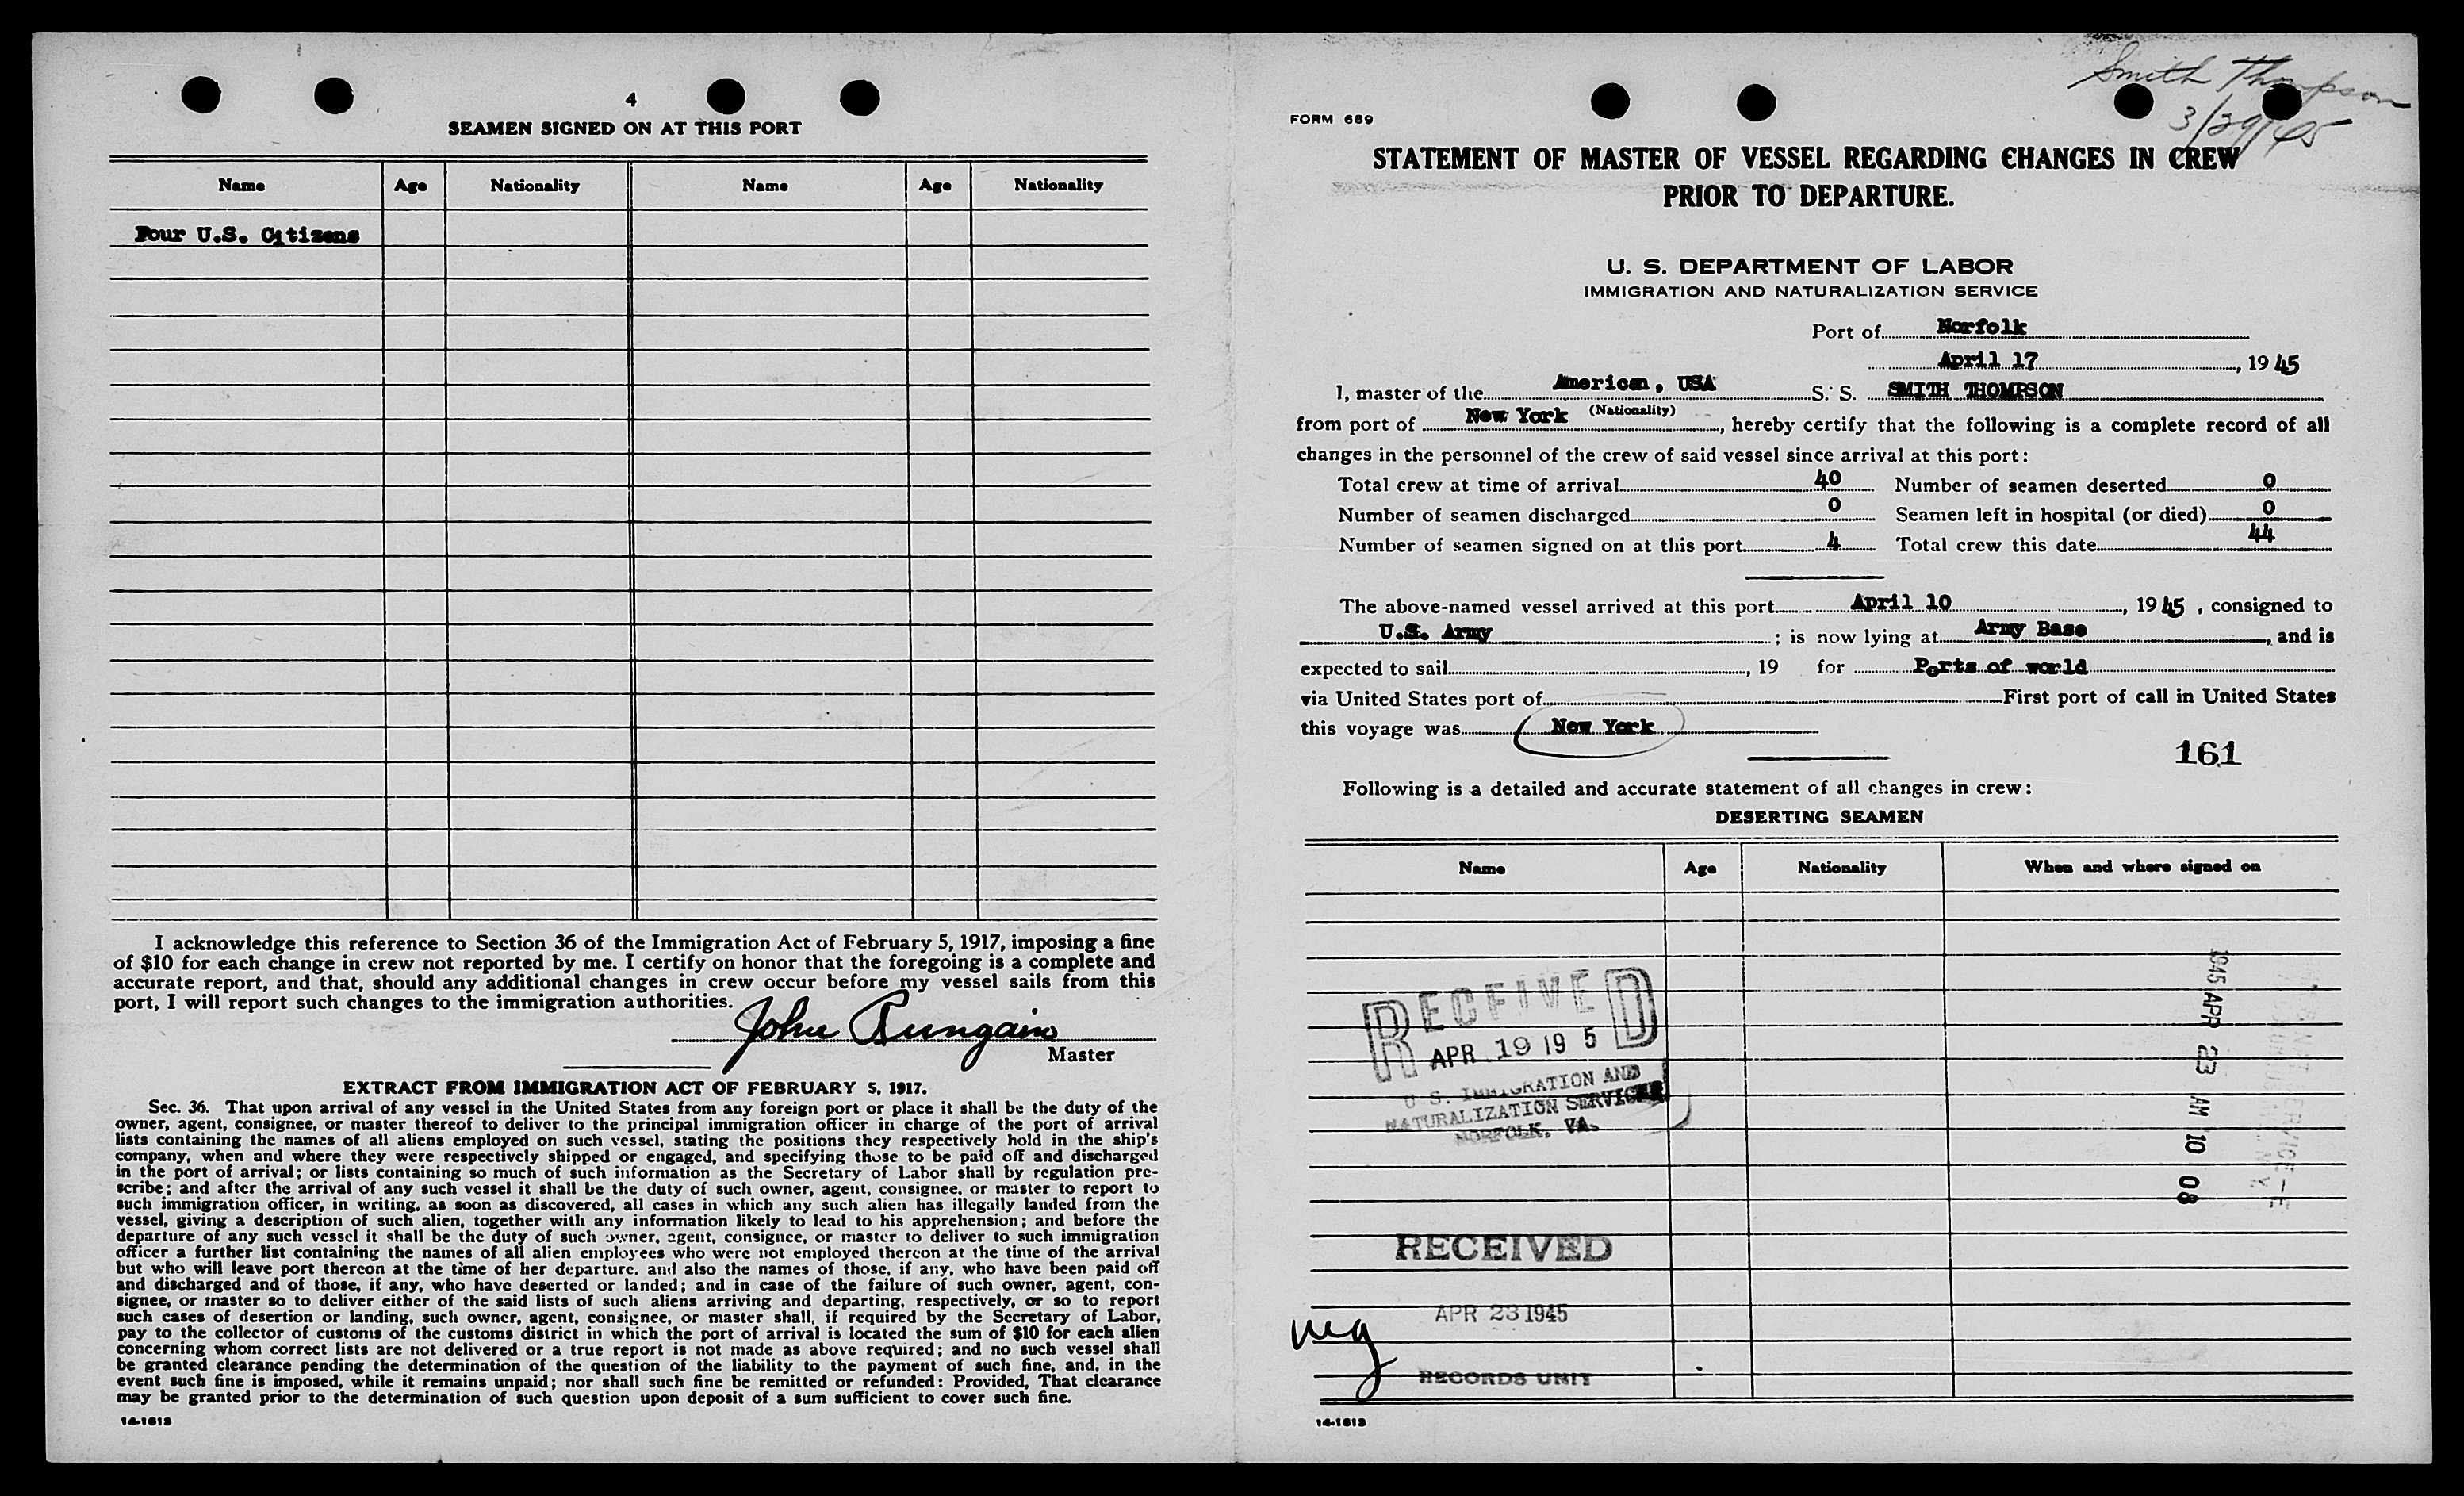 4
SEAMEN SIGNED ON AT THIS PORT
Name Age Nationality Name Age Nationality
Four U.S. Citizens
I acknowledge this reference to Section 36 of the Immigration Act of February 5, 1917, imposing a fine
of $10 for each change in crew not reported by me. I certify on honor that the foregoing is a complete and
accurate report, and that, should any additional changes in crew occur before my vessel sails from this
port, I will report such changes to the immigration authorities.
John
Master
EXTRACT FROM IMMIGRATION ACT OF FEBRUARY 5, 1917.
Sec. 36. That upon arrival of any vessel in the United States from any foreign port or place it shall be the duty of the
owner, agent, consignee, or master thereof to deliver to the principal immigration officer in charge of the port of arrival
lists containing the names of all aliens employed on such vessel, stating the positions they respectively hold in the ship's
company, when and where they were respectively shipped or engaged, and specifying those to be paid off and discharged
in the port of arrival; or lists containing so much of such information as the Secretary of Labor shall by regulation pre-
scribe; and after the arrival of any such vessel it shall be the duty of such owner, agent, consignee, or master to report to
such immigration officer, in writing, as soon as discovered, all cases in which any such alien has illegally landed from the
vessel, giving a description of such alien, together with any information likely to lead to his apprehension; and before the
departure of any such vessel it shall be the duty of such owner, agent, consignee, or master to deliver to such immigration
officer a further list containing the names of all alien employees who were not employed thereon at the time of the arrival
but who will leave port thereon at the time of her departure, and also the names of those, if any, who have been paid off
and discharged and of those, if any, who have deserted or landed; and in case of the failure of such owner, agent, con-
signee, or master so to deliver either of the said lists of such aliens arriving and departing, respectively, or so to report
such cases of desertion or landing, such owner, agent, consignee, or master shall, if required by the Secretary of Labor,
pay to the collector of customs of the customs district in which the port of arrival is located the sum of $10 for each alien
concerning whom correct lists are not delivered or a true report is not made as above required; and no such vessel shall
be granted clearance pending the determination of the question of the liability to the payment of such fine, and, in the
event such fine is imposed, while it remains unpaid; nor shall such fine be remitted or refunded: Provided, That clearance
may be granted prior to the determination of such question upon deposit of a sum sufficient to cover such fine.
14-1613
Smith Thompson
3/29/45
FORM 689
STATEMENT OF MASTER OF VESSEL REGARDING CHANGES IN CREW
PRIOR TO DEPARTURE.
U. S. DEPARTMENT OF LABOR
IMMIGRATION AND NATURALIZATION SERVICE
Port of Norfolk
April 17, 1945
I, master of the American, USA S. S. SMITH THOMPSON
(Nationality)
from port of New York, hereby certify that the following is a complete record of all
changes in the personnel of the crew of said vessel since arrival at this port:
Total crew at time of arrival 40 Number of seamen deserted 0
Number of seamen discharged 0 Seamen left in hospital (or died) 0
Number of seamen signed on at this port 4 Total crew this date 44
The above-named vessel arrived at this port April 10, 1945, consigned to
U.S. Army; is now lying at Army Base, and is
expected to sail, 19 for Ports of world
via United States port of First port of call in United States
this voyage was New York
161
Following is a detailed and accurate statement of all changes in crew:
DESERTING SEAMEN
Name Age Nationality When and where signed on
RECEIVED
APR 19 19 5
U. S. IMMIGRATION AND
NATURALIZATION SERVICE
NORFOLK, VA.
1945 APR 23 AM 10 08
RECEIVED
APR 23 1945
RECORDS UNIT
14-1613